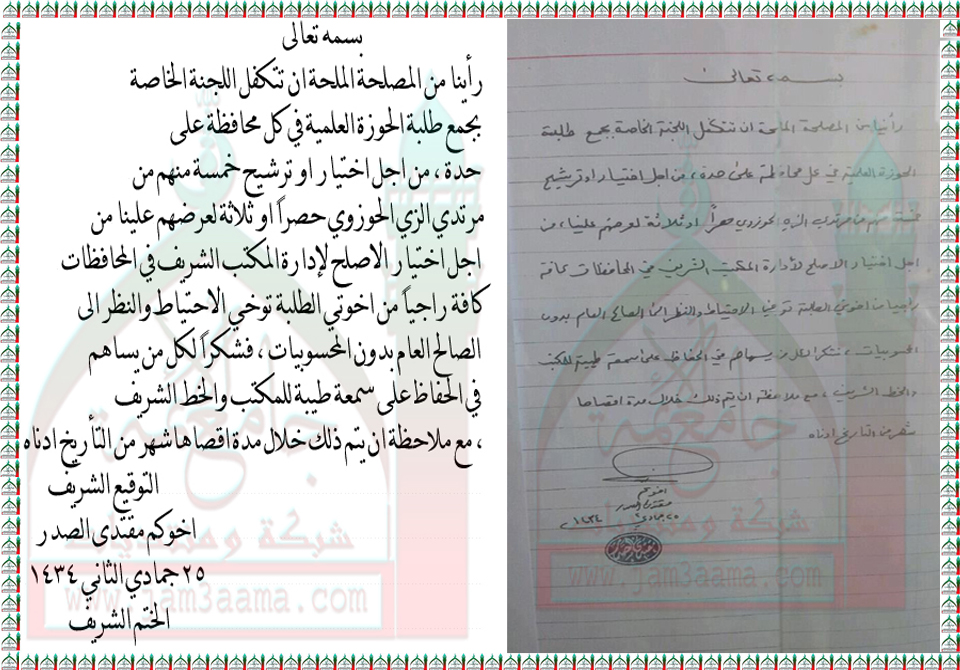 بسمه تعالى
رأينا من المصلحة الملحة ان تتكفل اللجنة الخاصة
بجمع طلبة الحوزة العلمية في كل محافظة على
حدة ، من اجل اختيار او ترشيح خمسة منهم من
مرتدي الزي الحوزوي حصراً او ثلاثة لعرضهم علينا من
اجل اختيار الاصلح لإدارة المكتب الشريف في المحافظات
كافة راجياً من اخوتي الطلبة توخي الاحتياط والنظر الى
الصالح العام بدون المحسوبيات ، فشكراً لكل من يساهم
في الحفاظ على سمعة طيبة للمكتب والخط الشريف
، مع ملاحظة ان يتم ذلك خلال مدة اقصاها شهر من التأريخ ادناه
التوقيع الشريف
اخوكم مقتدى الصدر
٢٥ جمادي الثاني ١٤٣٤
الختم الشريف
بسمه تعالى
رأينا من المصلحة الملحة ان تتكفل اللجنة الخاصة بجمع طلبة
الحوزة العلمية في كل محافظة على حدة ، من اجل اختيار او ترشيح
خمسة منهم من مرتدي الزي الحوزوي حصراً او ثلاثة لعرضهم علينا ، من
اجل اختيار الاصلح لأدارة المكتب الشريف في المحافظات كافة
راجياً من اخوتي الطلبة توخي الاحتياط والنظر الى الصالح العام بدون
المحسوبيات ، فشكراً لكل من يساهم في الحفاظ على سمعة طيبة للمكتب
والخط الشريف ، مع ملاحظة ان يتم ذلك خلال مدة اقصاها
شهر من التاريخ ادناه
اخوكم
مقتدى الصدر
٢٥ جمادي ٢ ١٤٣٤
جامعة
الأئمة
شبكة ومنتديات
www.jam3aama.com
جامعة
الأئمة
شبكة ومنتديات
www.jam3aama.com